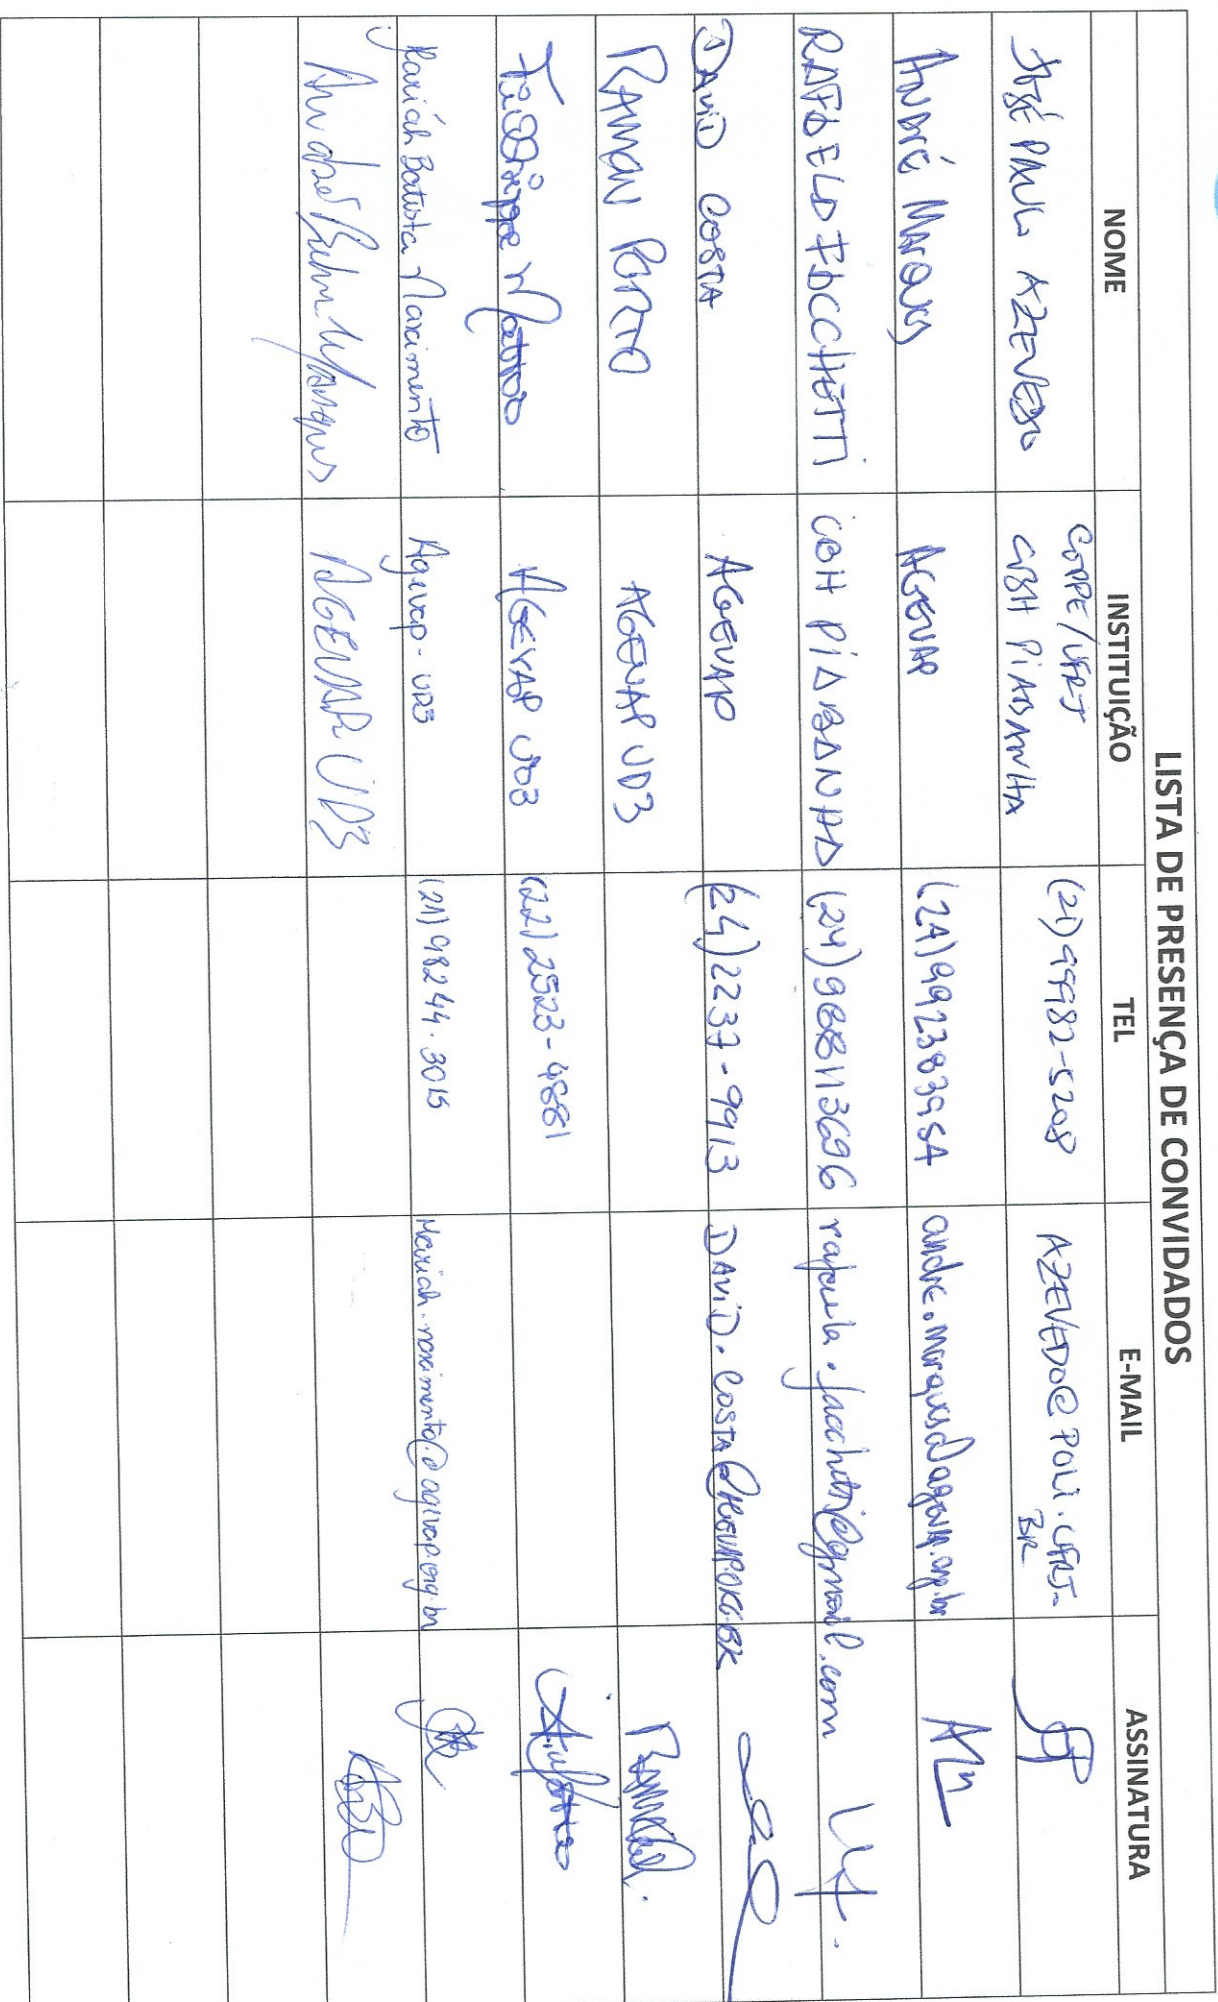 LISTA DE PRESENÇA DE CONVIDADOS
NOME INSTITUIÇÃO TEL E-MAIL ASSINATURA
JOSÉ PAULO AZEVEDO COPPE/UFRJ CBH PIABANHA (21)99982-5208 AZEVEDO@POLI.UFRJ.BR
ANDRÉ MARQUES AGEVAP (24) andre.marques@agevap.org.br
RAFAELA FACCHETTI CBH PIABANHA (24)988113696 rafaela.facchetti@gmail.com
DAVID COSTA AGEVAP (24)2237-9913 DAVID.COSTA@AGEVAP.ORG.BR
RAMON PORTO AGEVAP UD3
AGEVAP UD3 (22)2523-4881
Mariah Batista Nascimento Agevap-UD3 (21)98244.3015 Mariah.nascimento@agevap.org.br
André Marques AGEVAP UD3